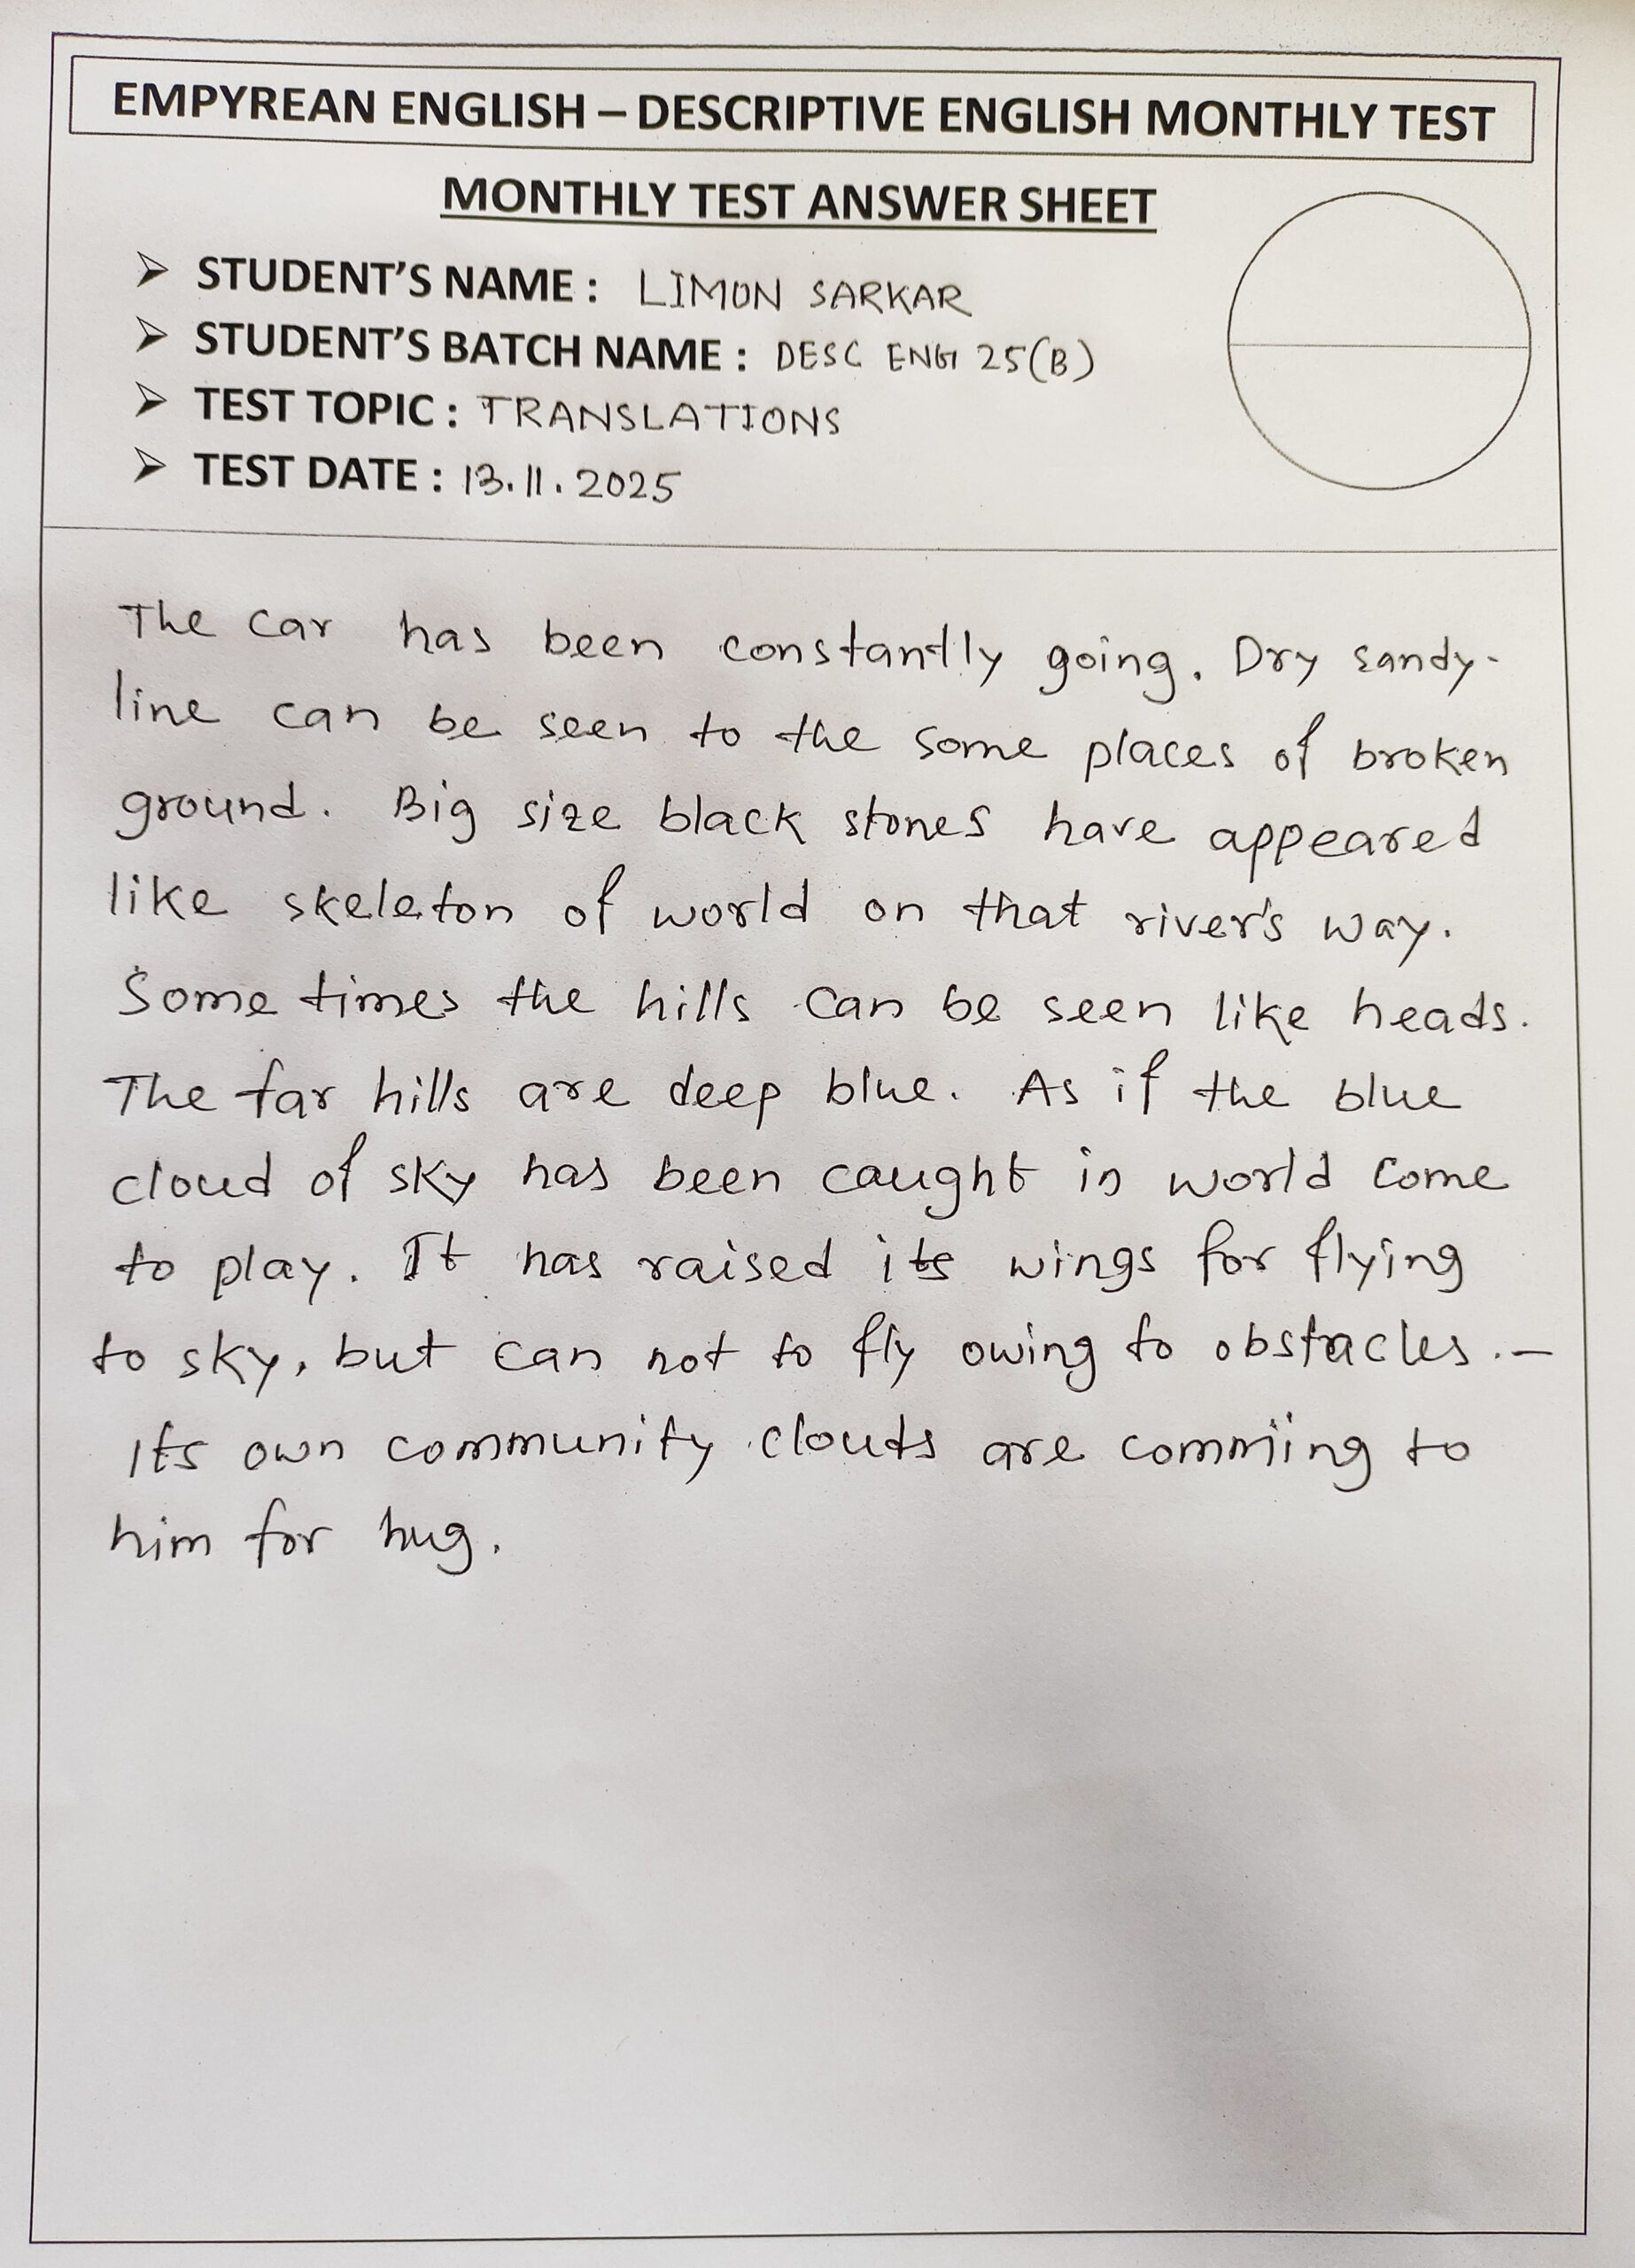 EMPYREAN ENGLISH – DESCRIPTIVE ENGLISH MONTHLY TEST
MONTHLY TEST ANSWER SHEET
➢ STUDENT'S NAME : LIMON SARKAR
➢ STUDENT'S BATCH NAME : DESC ENG 25(B)
➢ TEST TOPIC : TRANSLATIONS
➢ TEST DATE : 13.11.2025
The car has been constantly going. Dry sandy-
line can be seen to the some places of broken
ground. Big size black stones have appeared
like skeleton of world on that river's way.
Some times the hills can be seen like heads.
The far hills are deep blue. As if the blue
cloud of sky has been caught in world come
to play. It has raised its wings for flying
to sky, but can not to fly owing to obstacles.–
Its own community clouds are comming to
him for hug.